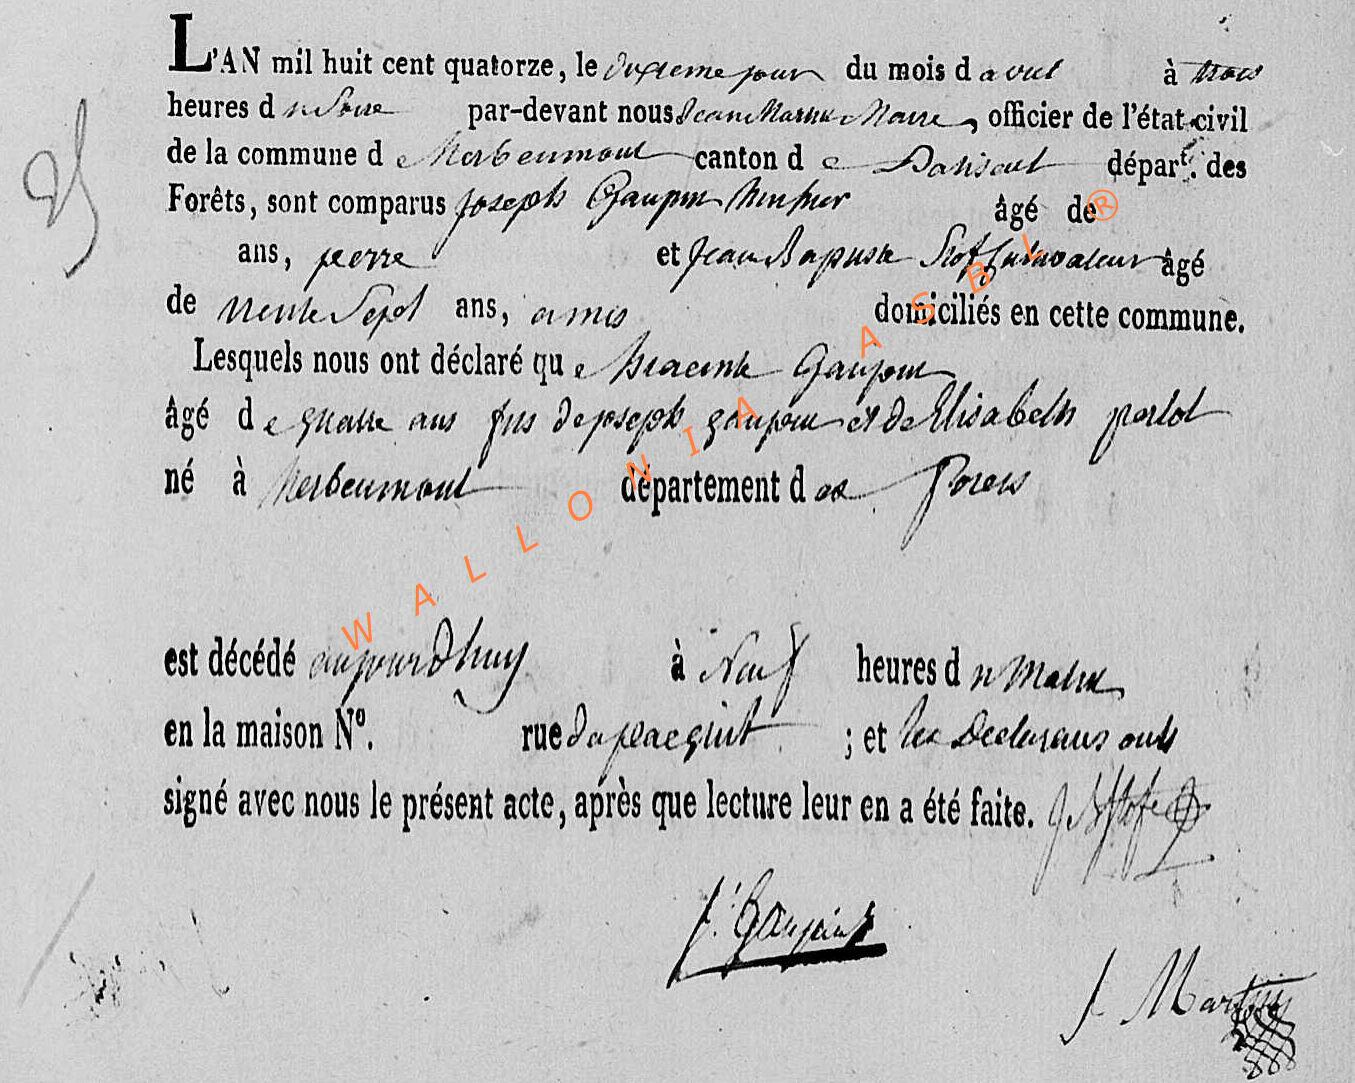 L'AN mil huit cent quatorze, le dixieme jour du mois d avril à trois
heures d u Soire par-devant nous Jean Martin Maire, officier de l'état civil
de la commune d e Herbeumont canton d e Paliseul départ. des
Forêts, sont comparus joseph Gaupin âgé de
ans, perre et jean Baptiste Stoffe Cultivateur âgé
de trente Sept ans, amis domiciliés en cette commune.
Lesquels nous ont déclaré qu e hiacinte Gaupin
âgé d e quatre ans fils de joseph gaupin et de Elisabeth perlot
né à Herbeumont département d es Forets
est décédé aujourdhuy à Neuf heures d u Matin
en la maison Nº. rue ; et les Declarans onts
signé avec nous le présent acte, après que lecture leur en a été faite. J B Stofe
J. Gaupin
J Martin
WALLONIA ASBL ®